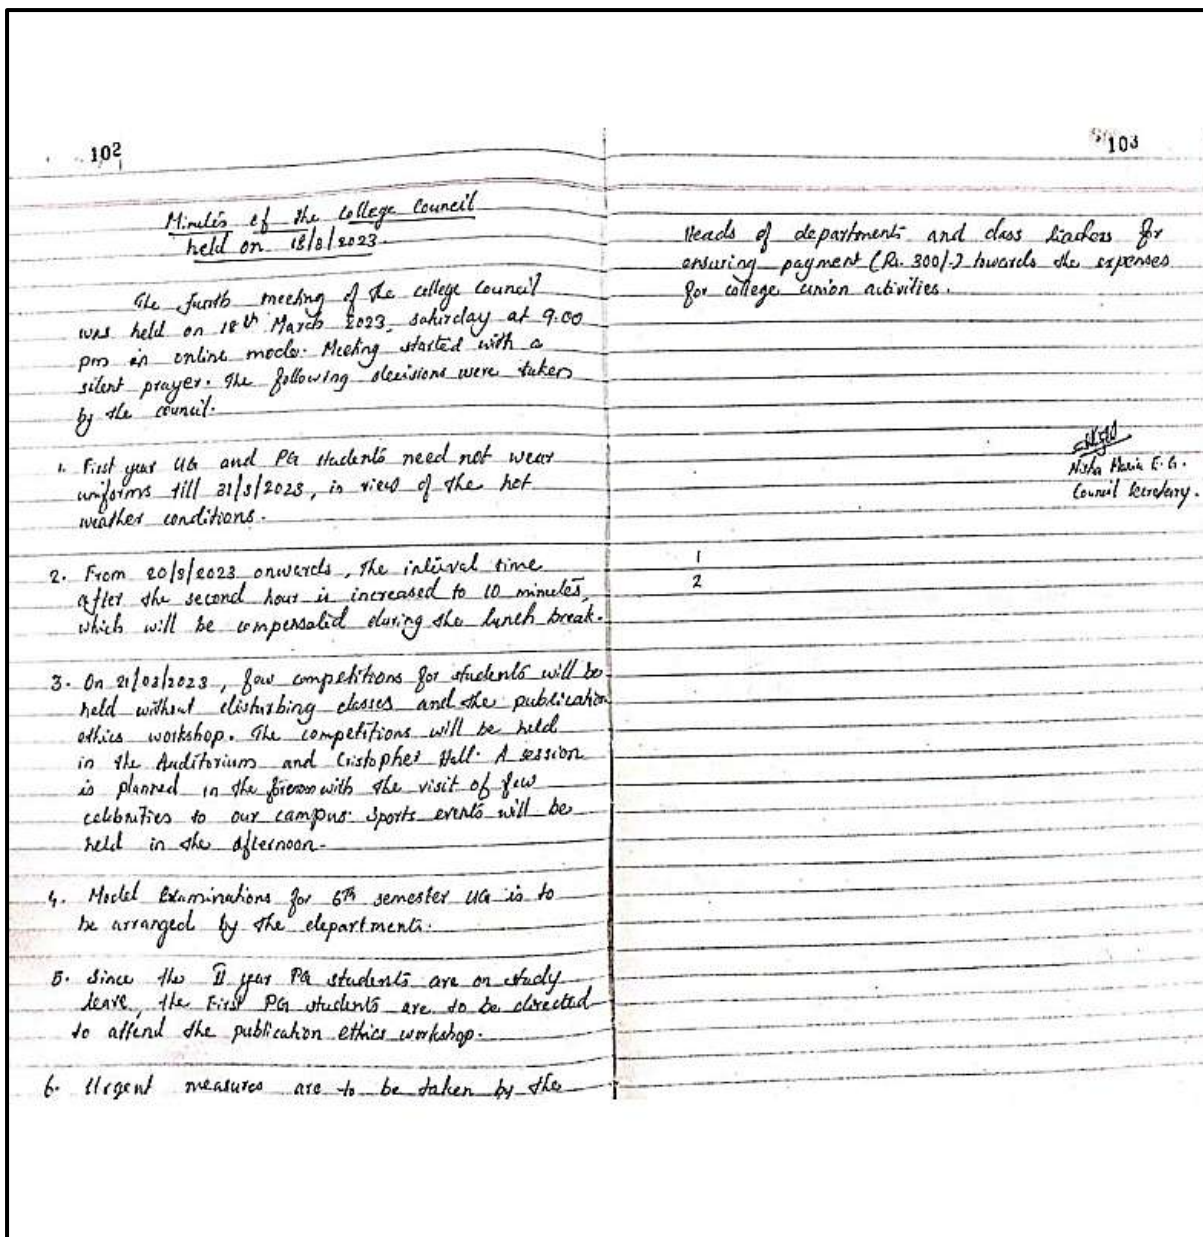 102
Minutes of the College Council
held on 18/3/2023.
The fourth meeting of the college Council
was held on 18th March 2023, saturday at 9.00
pm in online mode. Meeting started with a
silent prayer. The following decisions were taken
by the council.
1. First year UG and PG students need not wear
uniforms till 31/3/2023, in view of the hot
weather conditions.
2. From 20/3/2023 onwards, the interval time
after the second hour is increased to 10 minutes,
which will be compensated during the lunch break.
3. On 21/03/2023, few competitions for students will be
held without disturbing classes and the publication
ethics workshop. The competitions will be held
in the Auditorium and Cristopher Hall. A session
is planned in the forenoon with the visit of few
celebrities to our campus. Sports events will be
held in the afternoon.
4. Model Examinations for 6th semester UG is to
be arranged by the departments.
5. Since the II year PG students are on study
leave, the First PG students are to be directed
to attend the publication ethics workshop.
6. Urgent measures are to be taken by the
103
Heads of departments and class teachers for
ensuring payment (Rs. 300/-) towards the expenses
for college union activities.
Nisha Maria E. G.
Council Secretary.
1
2